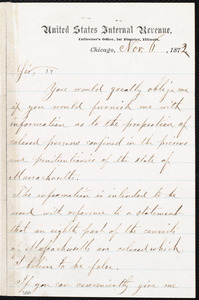 United States Internal Revenue.
Collector's Office, 1st District, Illinois.
Chicago, Nov. 6 1872
Sir,
You would greatly oblige me
if you would furnish me with
information as to the proportion of
colored persons confined in the prisons
and penitentiaries of the state of
Massachusetts.
The information is intended to be
used with reference to a statement
that an eighth part of the convicts
of Massachusetts are colored which
I believe to be false.
If you can conveniently give me